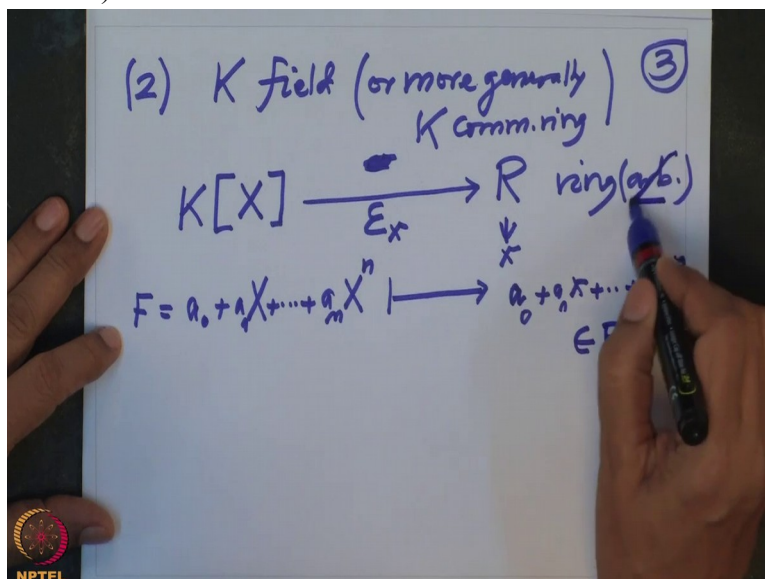 (2) K field (or more generally ③
K comm.ring)
K[X] ⟶ R ring(arb.)
ε_x
x
F = a_0 + a_1X + ⋯ + a_nX^n ⟼ a_0 + a_1x + ⋯
∈
NPTEL